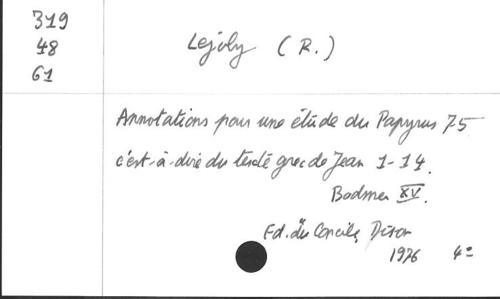 319
48
61
Lejoly (R.)
Annotations pour une étude du Papyrus 75
c'est-à-dire du texte grec de Jean 1-14.
Bodmer XV.
Ed. du Concile, Dison
1976 4°